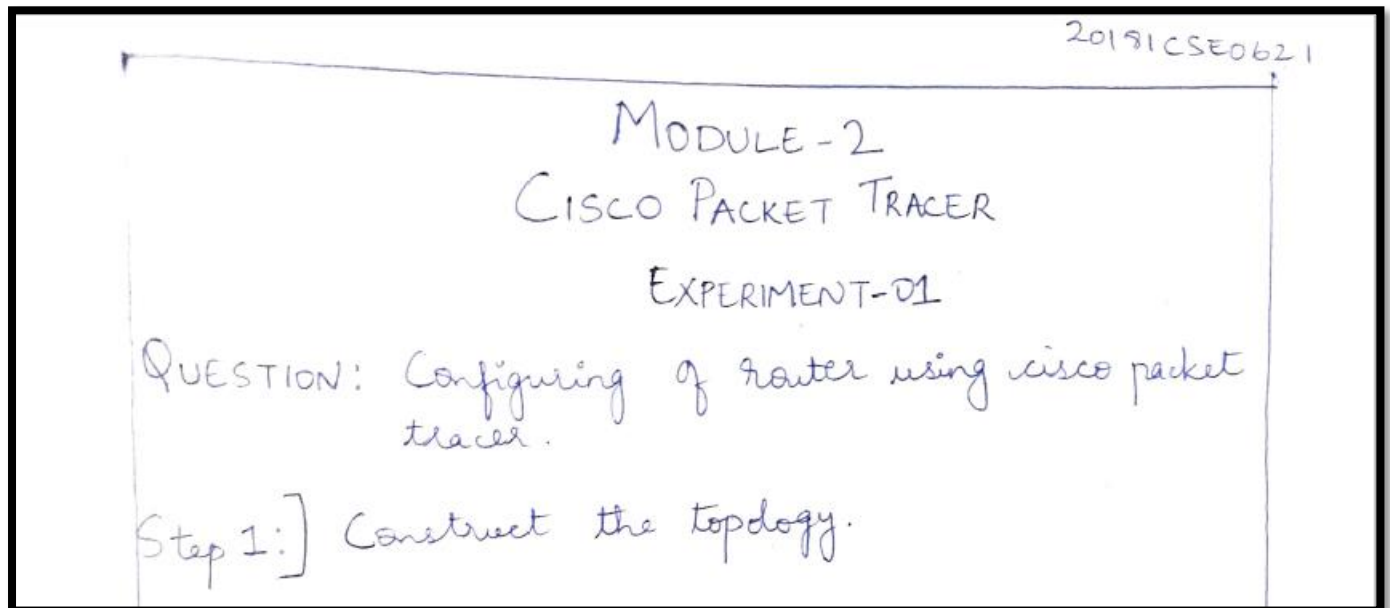 20181CSE0621
MODULE-2
CISCO PACKET TRACER
EXPERIMENT-01
QUESTION: Configuring of router using cisco packet
tracer.
Step 1:] Construct the topology.